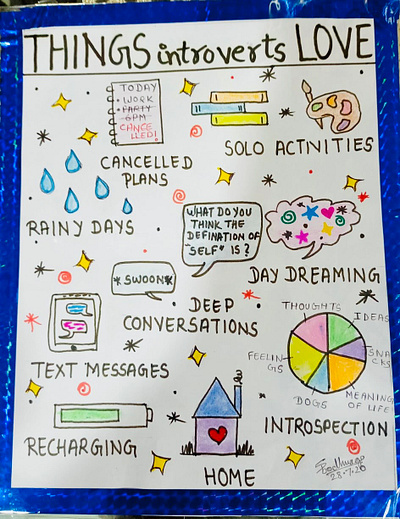 THINGS introverts LOVE
TODAY
• WORK
• PARTY
6PM
CANCE
LLED!
CANCELLED
PLANS
SOLO ACTIVITIES
RAINY DAYS
WHAT DO YOU
THINK THE
DEFINATION OF
"SELF" IS?
DAY DREAMING
*SWOON*
DEEP
CONVERSATIONS
TEXT MESSAGES
THOUGHTS
IDEAS
SNA
CKS
MEANING
OF LIFE
DOGS
FEELIN
GS
INTROSPECTION
RECHARGING
HOME
28-7-20